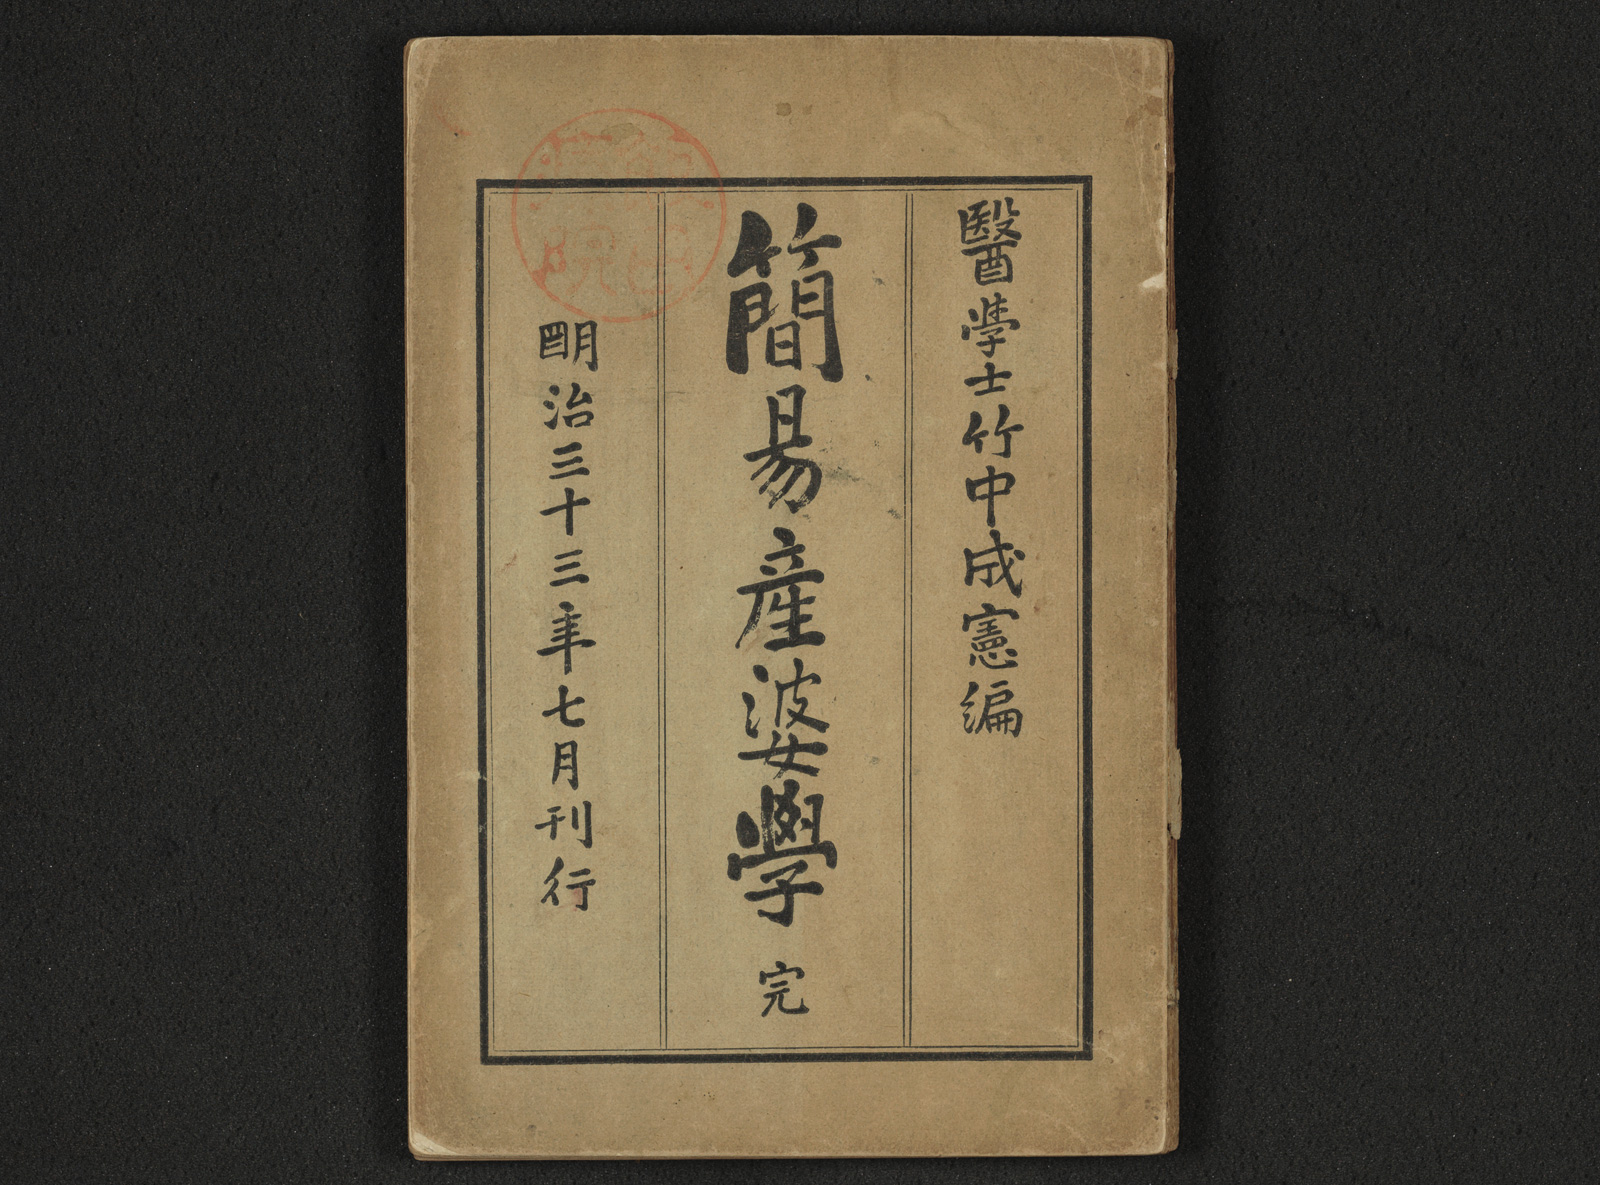 醫學士竹中成憲編
簡易産婆學 完
明治三十三年七月刊行